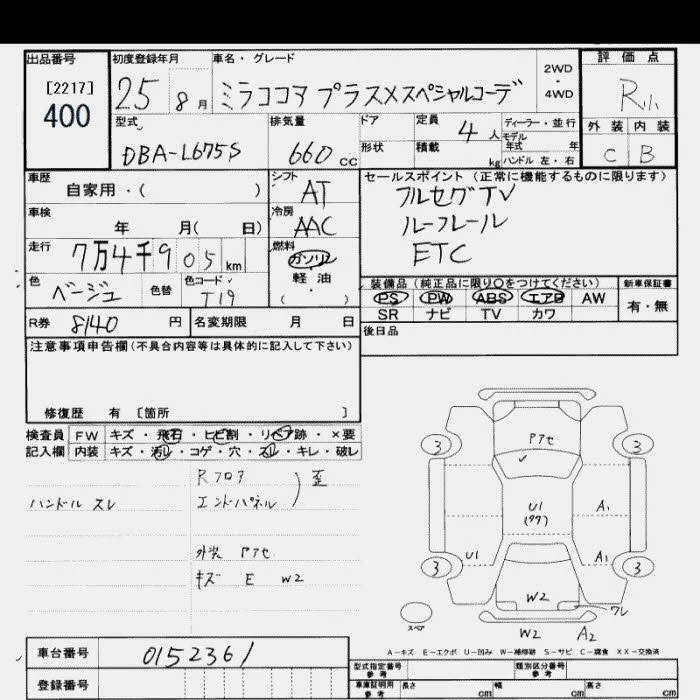 出品番号 [2217] 400
初度登録年月 25 8月
車名・グレード ミラココア プラスXスペシャルコーデ
2WD・4WD
評価点 R
外装 C 内装 B
型式 DBA-L675S
排気量 660 cc
ドア 形状
定員 4人 積載 kg
ディーラー・並行
モデル年式 年
ハンドル 左・右
車歴 自家用・( )
車検 年 月( 日)
走行 7万4千905 km
色 ベージュ 色替 色コード T19
シフト AT
冷房 AAC
燃料 ガソリン 軽・油 ( )
セールスポイント(正常に機能するものに限ります)
フルセグTV
ルーフレール
ETC
装備品(純正品に限り○をつけてください)
PS PW ABS エアB AW
SR ナビ TV カワ
新車保証書 有・無
後日品
R券 8140 円 名変期限 月 日
注意事項申告欄(不具合内容等は具体的に記入して下さい)
修復歴 有 [箇所 ]
検査員記入欄
FW キズ・飛石・ヒビ割・リペア跡・×要
内装 キズ・汚レ・コゲ・穴・スレ・キレ・破レ
ハンドル スレ
Rフロア
エンドパネル ) 歪
外装 Pアセ
キズ E W2
Pアセ
3 3
U1
A1
U1 A1
3 3
W2
ワレ
W2 A2
スペア
A-キズ E-エクボ U-凹み W-補修跡 S-サビ C-腐食 XX-交換済
車台番号 0152361
登録番号
型式指定番号 参考 類別区分番号 参考
車庫証明用 参考 長さ cm 幅 cm 高さ cm